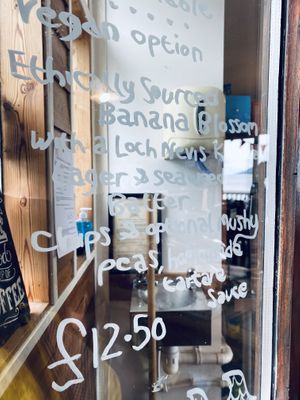 Vegan option
Ethically Sourced
Banana Blossom
with a Loch Nevis
Lager & seaweed
Batter
Chips & optional mushy
peas, homemade
tartare
sauce.
£12.50